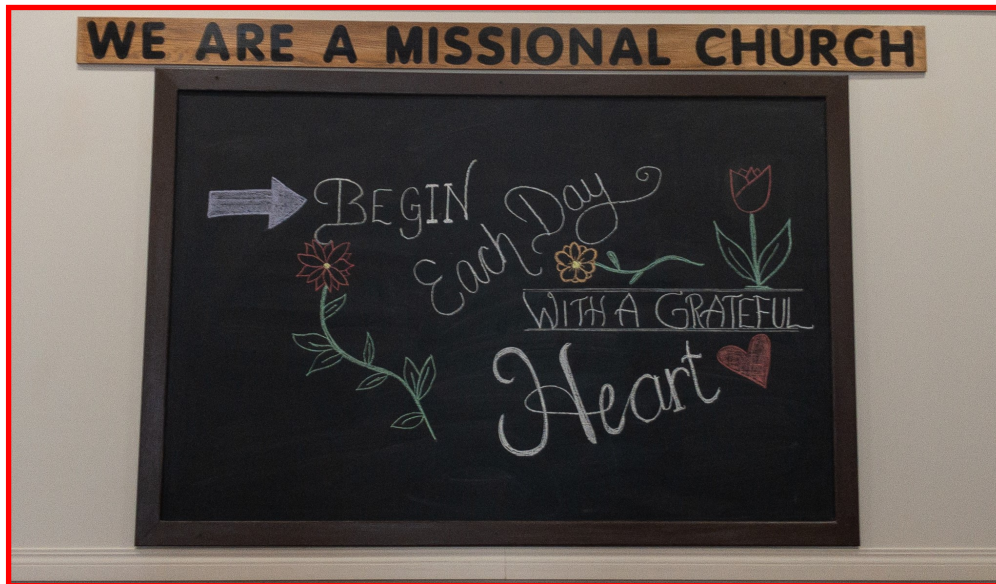 WE ARE A MISSIONAL CHURCH
BEGIN
Each Day
WITH A GRATEFUL
Heart